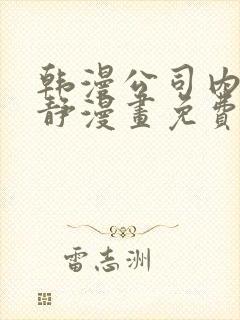 韩漫公司内
静漫畫免費
雷志洲